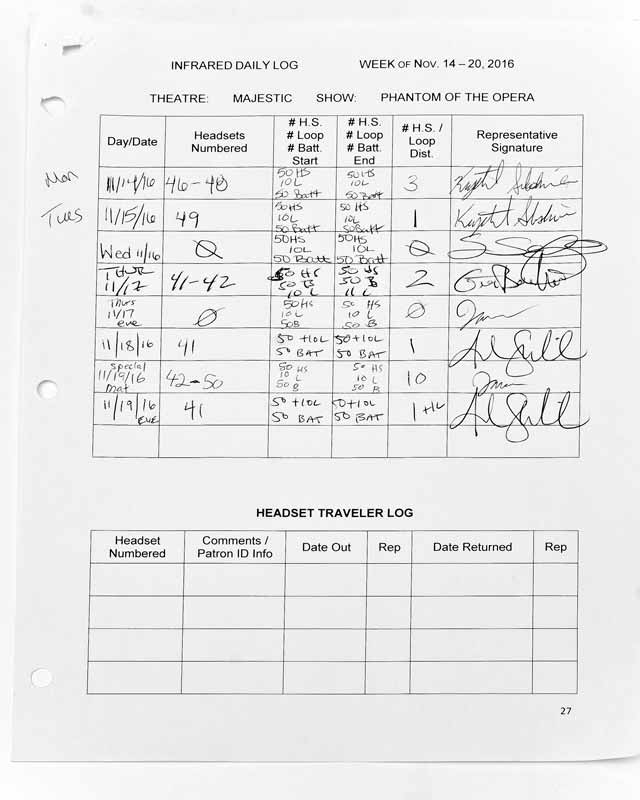 INFRARED DAILY LOG WEEK OF NOV. 14 – 20, 2016
THEATRE: MAJESTIC SHOW: PHANTOM OF THE OPERA
Day/Date
Headsets
Numbered
# H.S.
# Loop
# Batt.
Start
# H.S.
# Loop
# Batt.
End
# H.S. /
Loop
Dist.
Representative
Signature
Mon
11/14/16
46-40
50 HS
10 L
50 Batt
50 HS
10 L
50 Batt
3
Tues
11/15/16
49
50HS
10L
50 Batt
50 HS
10L
50 Batt
1
Wed 11/16
Ø
50HS
10L
50 Batt
50HS
10L
50 Batt
Ø
THUR
11/17
41-42
50 HS
50 B
10 L
50 HS
50 B
11 L
2
Thurs
11/17
eve
Ø
50HS
10 L
50B
50 HS
10 L
50 B
Ø
11/18/16
41
50 +10L
50 BAT
50+10L
50 BAT
1
special
11/19/16
mat
42-50
50 HS
10 L
50 B
50 HS
10 L
50 B
10
11/19/16
EVE
41
50 +10L
50 BAT
50+10L
50 BAT
1 +1L
HEADSET TRAVELER LOG
Headset
Numbered
Comments /
Patron ID Info
Date Out
Rep
Date Returned
Rep
27